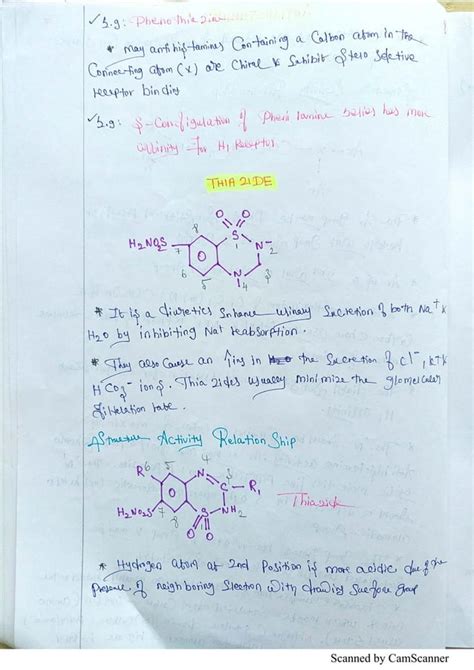 E.g: Phenothiazine
* may antihistamines Containing a Carbon atom in the
Connecting atom (x) are Chiral & Exhibit Stereo Selective
receptor binding
E.g: S-Configulation of Pheni ramine series has more
affinity for H1 Receptor.
THIAZIDE
H2NO2S
O O
S
N
N
8
7
6
5
4
1
2
3
* It is a diuretics Enhance urinary Sucretion of both Na+ &
H2O by inhibiting Na+ reabsorption.
* They also Cause an ↑ing in the Sucretion of Cl-, K+ &
HCO3- ions. Thiazides usually minimize the glomerular
filteration rate.
Structure Activity Relation Ship
R
H2NO2S
N
C
R1
NH
S
O O
4
5
6
7
8
3
2
1
* Hydrogen atom at 2nd Position is more acidic due of the
Presence of neighboring Electron With drawing
Scanned by CamScanner